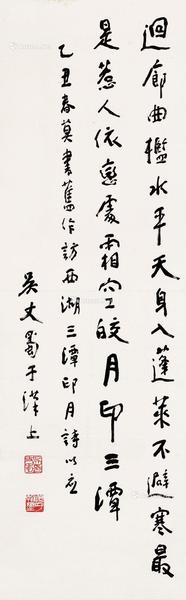 迴廊曲檻水平天身入蓬萊不避寒最
是惹人依戀處霜空皎月印三潭
乙丑春莫書舊作訪西湖三潭印月詩以应
吳丈蜀于漢上